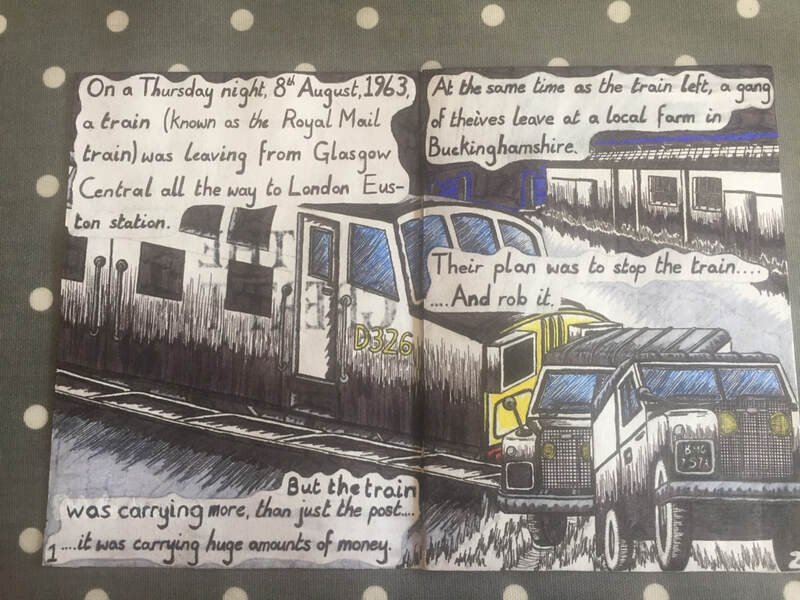 On a Thursday night, 8th August, 1963,
a train (known as the Royal Mail
train) was leaving from Glasgow
Central all the way to London Eus-
ton station.
D326
But the train
was carrying more, than just the post....
....it was carrying huge amounts of money.
1
At the same time as the train left, a gang
of theives leave at a local farm in
Buckinghamshire.
Their plan was to stop the train....
....And rob it.
2